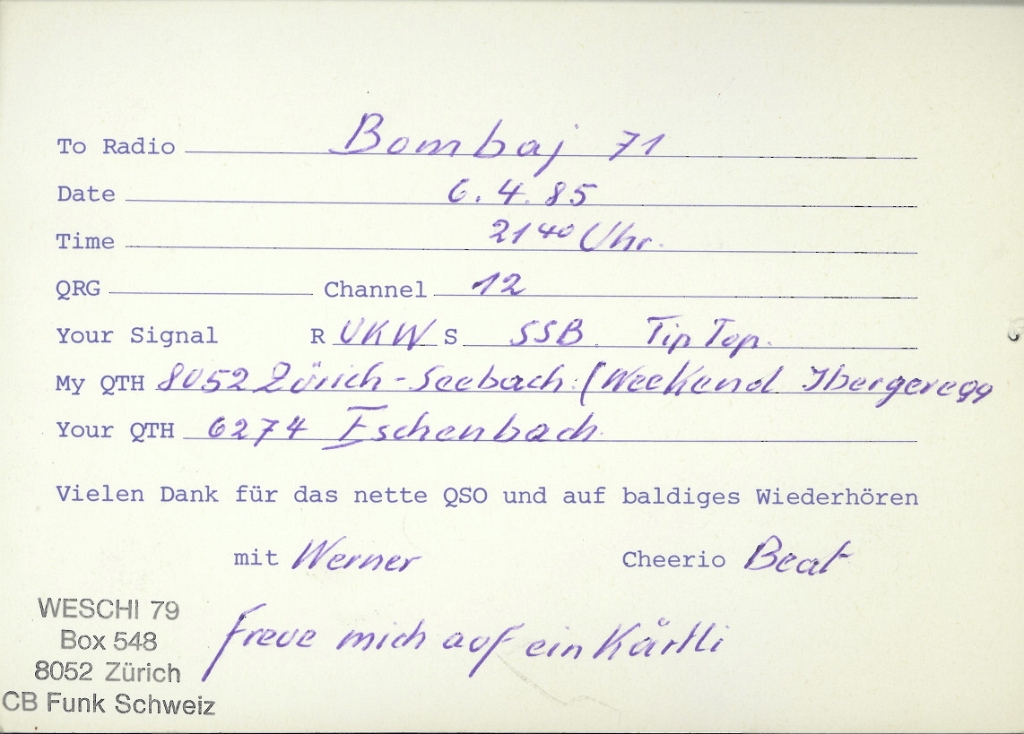 To Radio Bombaj 71
Date 6.4.85
Time 21⁴⁰ Uhr.
QRG Channel 12
Your Signal R UKW S SSB. Tip Top.
My QTH 8052 Zürich-Seebach: (Weekend Ibergeregg
Your QTH 6274 Eschenbach.
Vielen Dank für das nette QSO und auf baldiges Wiederhören
mit Werner Cheerio Beat
Freue mich auf ein Kärtli
WESCHI 79
Box 548
8052 Zürich
CB Funk Schweiz